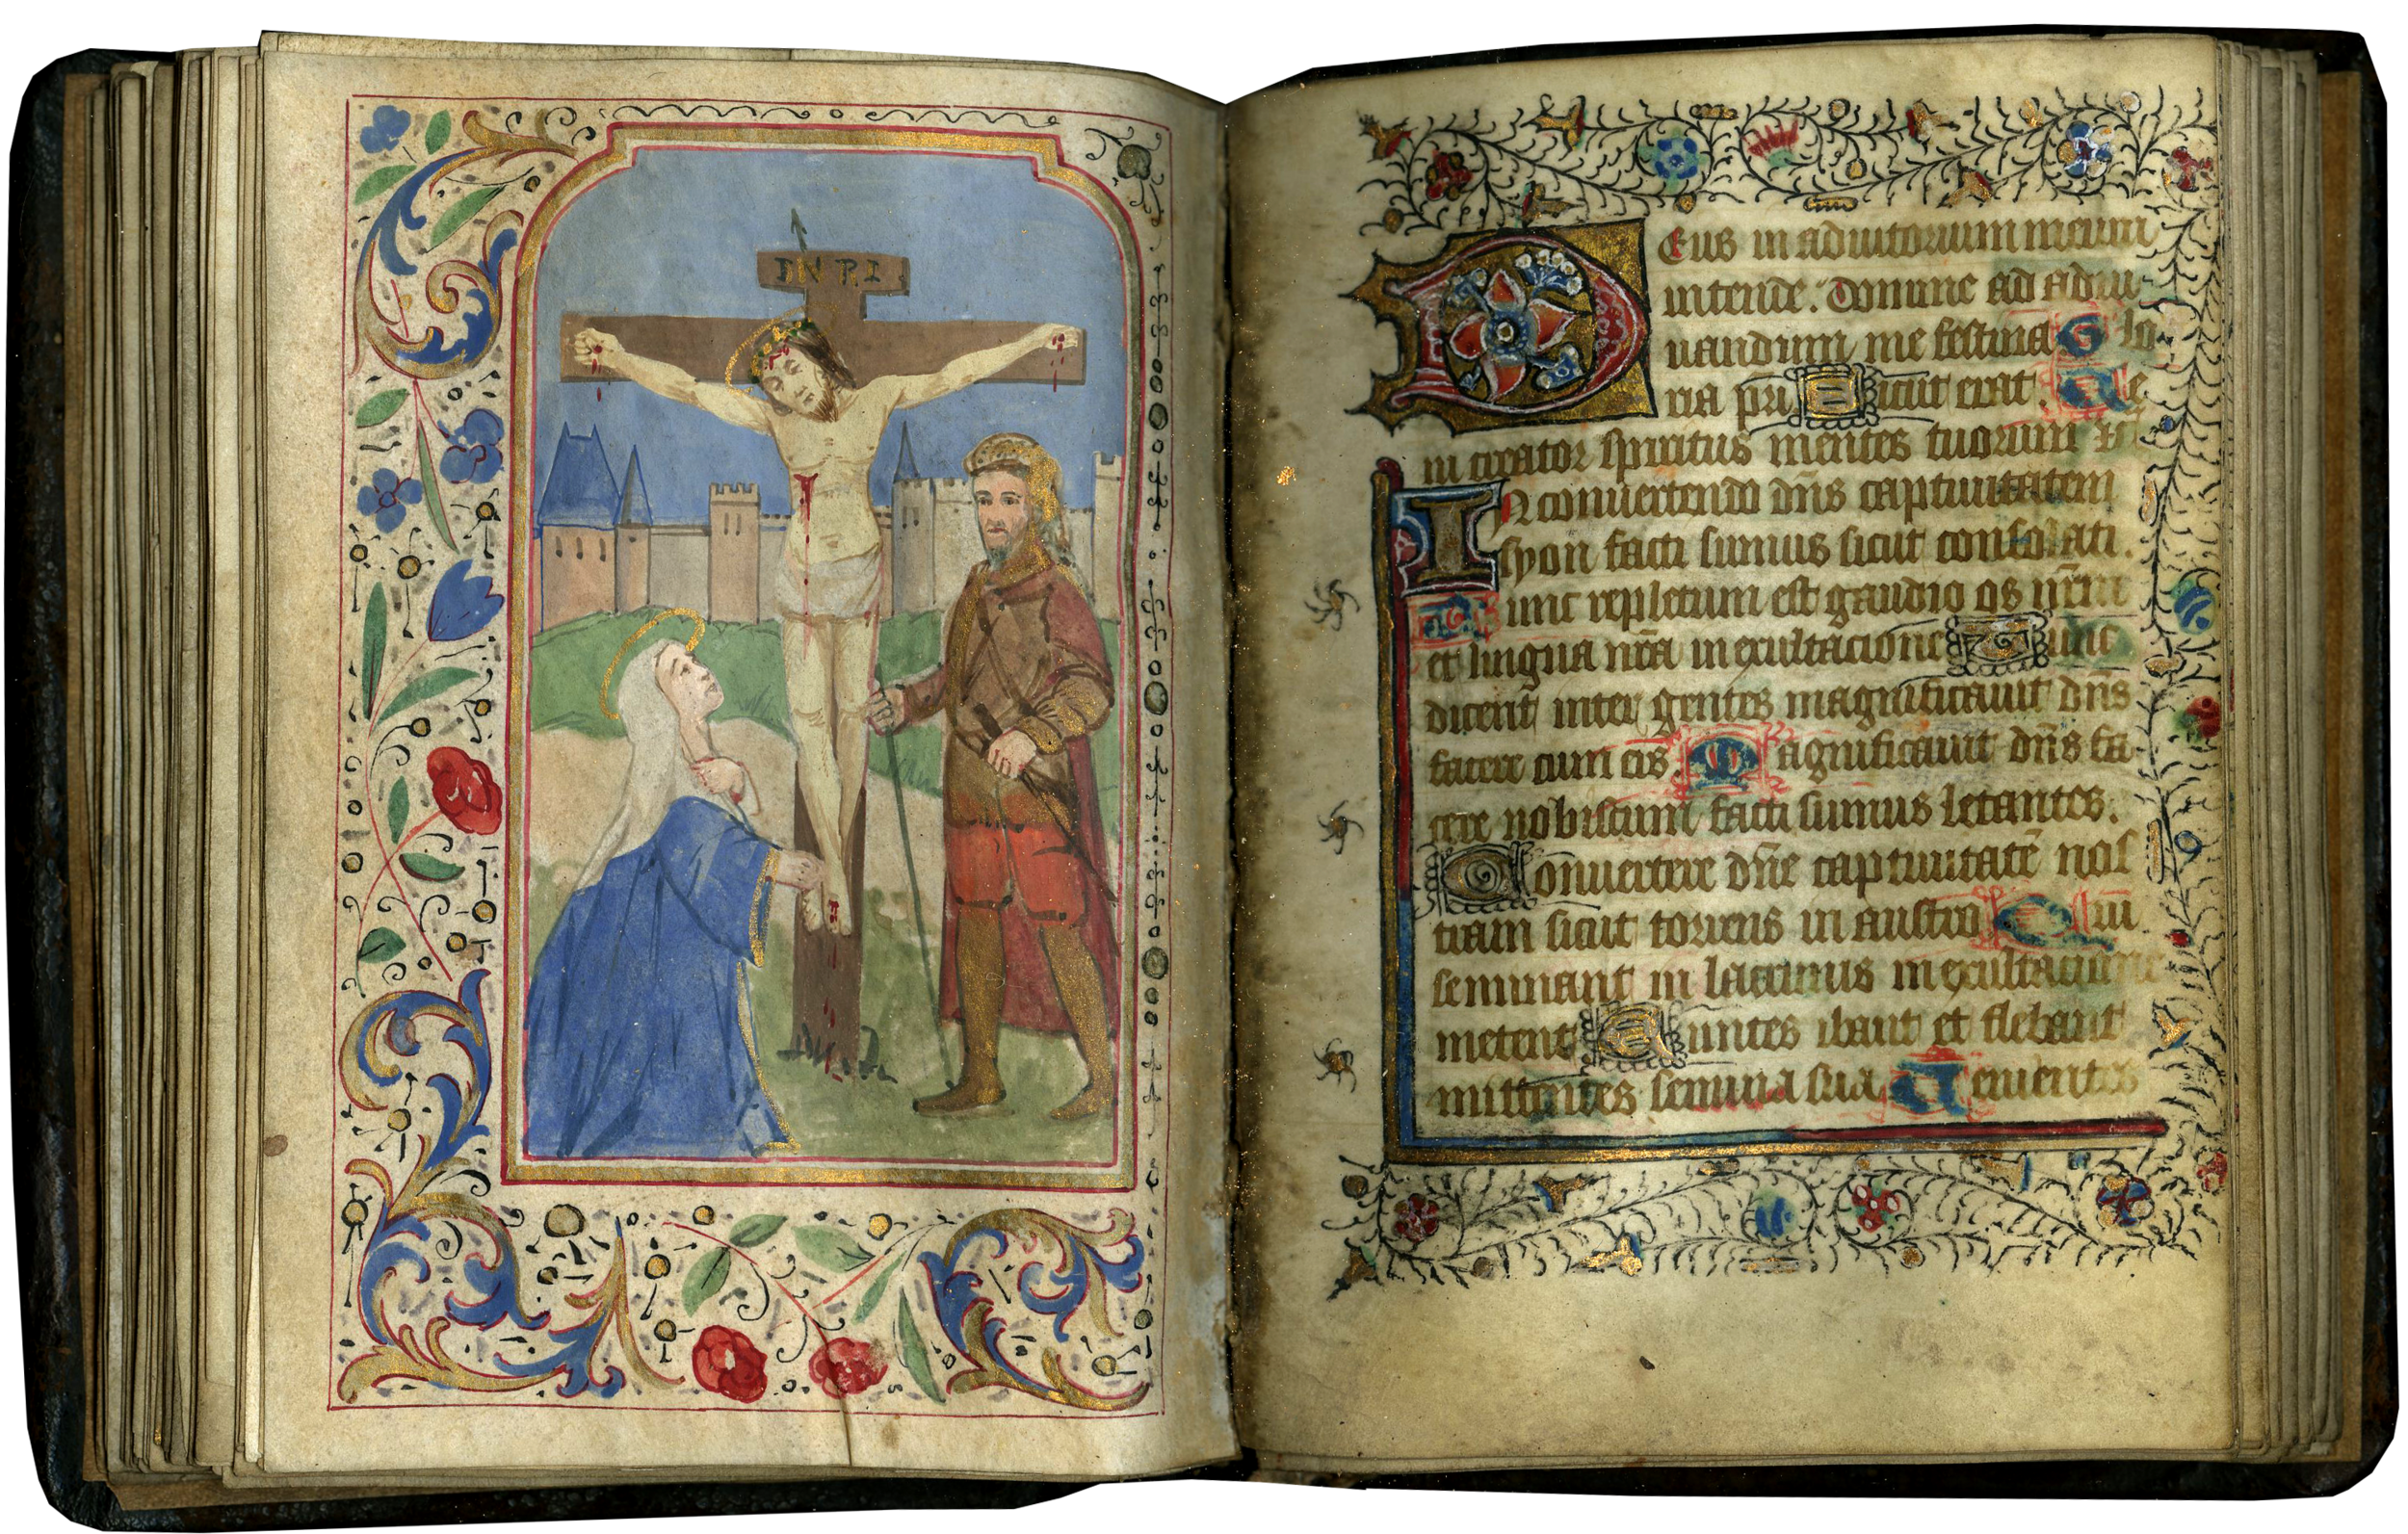 INRI
Deus in adiutorium meum
intende. Domine ad adiu-
uandum me festina Glo-
ria pri Sicut erat. Ue
ni creator spiritus mentes tuorum vi
In conuertendo dn̄s captiuitatem
syon facti sumus sicut consolati.
Tunc repletum est gaudio os nr̄m
et lingua nr̄a in exultacione Tunc
dicent inter gentes magnificauit dn̄s
facere cum eis. Magnificauit dn̄s fa-
cere nobiscum facti sumus letantes.
Conuertere dn̄e captiuitatē nos
tram sicut torrens in austro Qui
seminant in lacrimis in exultacione
metent Euntes ibant et flebant
mittentes semina sua Uenientes